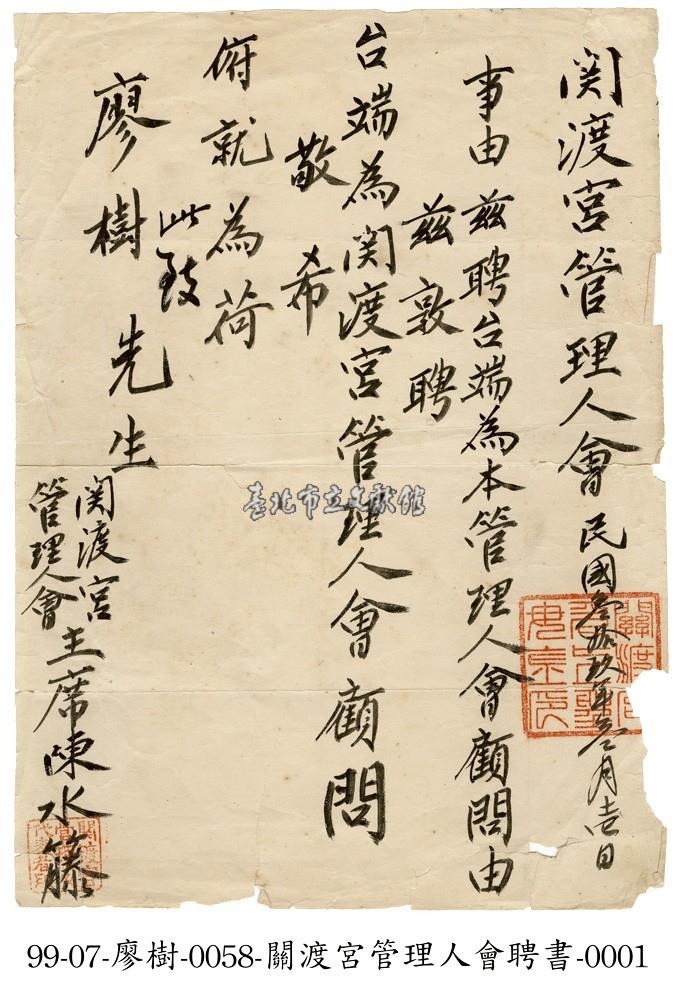 関渡宮管理人會 民國叁拾玖年叁月吉日
事由 茲聘台端為本管理人會顧問由
茲敦聘
台端為関渡宮管理人會顧問
敬希
俯就為荷
此致
廖樹先生
関渡宮
管理人會
主席陳水籐
臺北市立文獻館
99-07-廖樹-0058-關渡宮管理人會聘書-0001